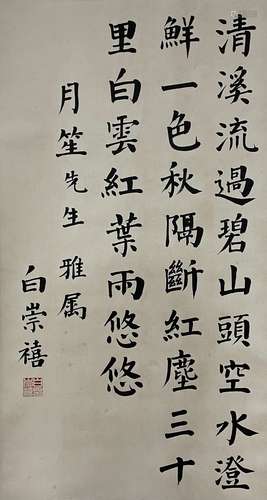 清溪流過碧山頭空水澄
鮮一色秋隔斷紅塵三十
里白雲紅葉兩悠悠
月笙先生 雅属
白崇禧